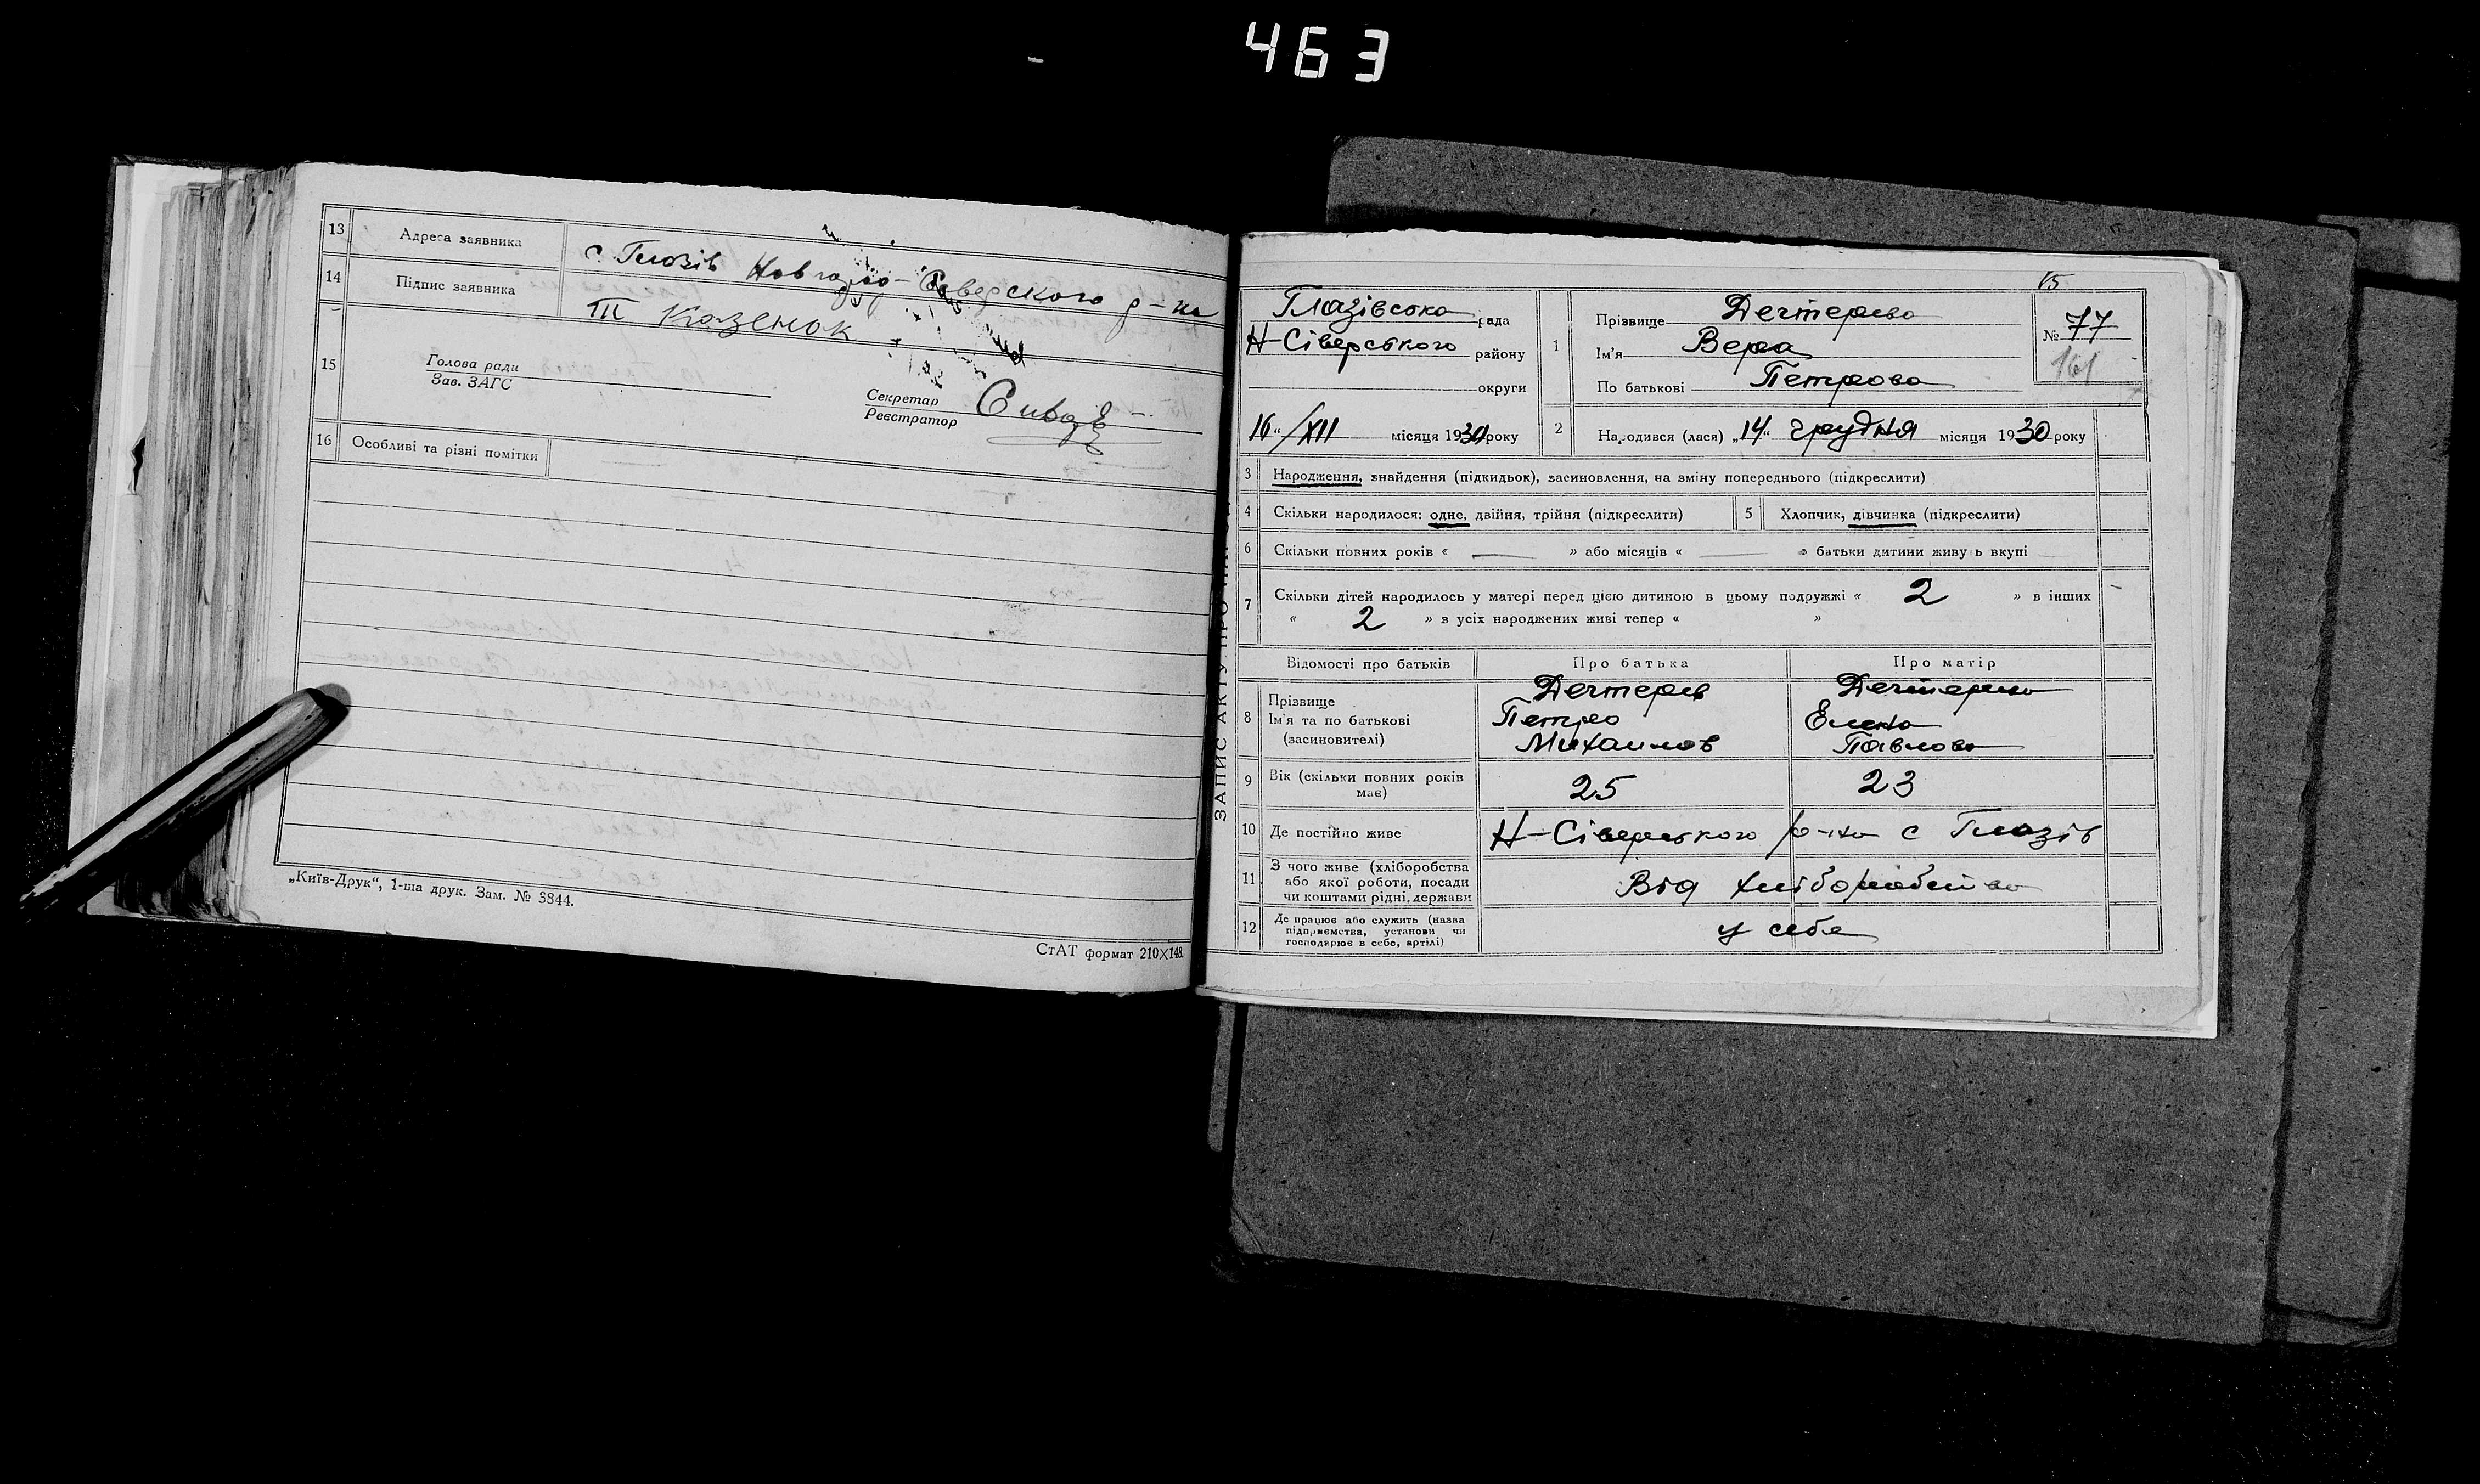 463
13 Адреса заявника с Глазів Новгород-Сіверского р-на
14 Підпис заявника Т Казенок
15 Голова ради
Зав. ЗАГС
Секретар
Реєстратор
16 Особливі та різні помітки
„Київ-Друк“, 1-ша друк. Зам. № 3844.
СтАТ формат 210X148.
ЗАПИС АКТУ ПРО
15
Глазівська рада
Н-Сіверського району
округи
16 “/XII місяця 1930 року
1 Прізвище Дегтерева
Ім'я Вера
По батькові Петрова
№ 77
161
2 Народився (лася) „14“ грудня місяця 1930 року
3 Народження, знайдення (підкидьок), засиновлення, на зміну попереднього (підкреслити)
4 Скільки народилося: одне, двійня, трійня (підкреслити) 5 Хлопчик, дівчинка (підкреслити)
6 Скільки повних років « — » або місяців « — » батьки дитини живуть вкупі
7 Скільки дітей народилось у матері перед цією дитиною в цьому подружжі « 2 » в інших
« 2 » з усіх народжених живі тепер « »
Відомості про батьків Про батька Про матір
8 Прізвище Дегтерев Дегтерева
Ім'я та по батькові Петро Елена
(засиновителі) Михаилов Павлова
9 Вік (скільки повних років має) 25 23
10 Де постійно живе Н-Сіверського р-на с Глазів
11 З чого живе (хліборобства
або якої роботи, посади Від хліборобства
чи коштами рідні, держави
12 Де працює або служить (назва
підприємства, установи чи у себе
господарює в себе, артілі)